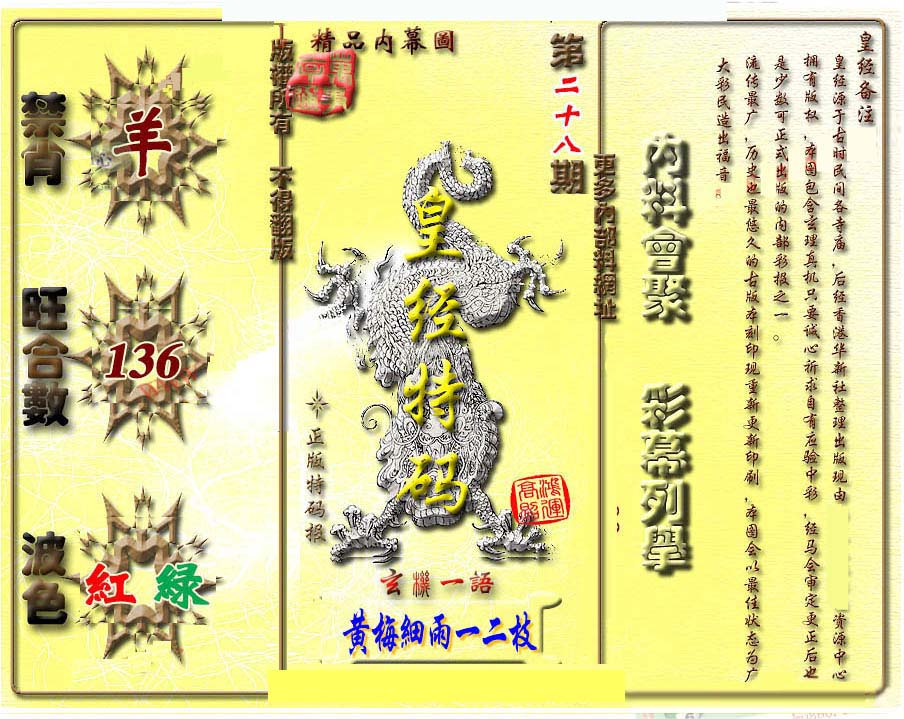 精品内幕圖
第二十八期
版權所有 不得翻版
更多內部料網址
禁肖
羊
旺合數
136
波色
紅 綠
皇经特码
正版特码报
鴻運高照
玄機一語
黃梅細雨一二枝
內料會聚
彩幕列舉
皇经备注
皇经源于古时民间各寺庙，后经香港华新社整理出版现由 资源中心
拥有版权，本图包含玄理真机只要诚心祈求自有应验中彩，经马会审定更正后也
是少数可正式出版的内部彩报之一。
流传最广，历史也最悠久的古版本刻印现重新更新印刷，本图会以最佳状态为广
大彩民造出福音